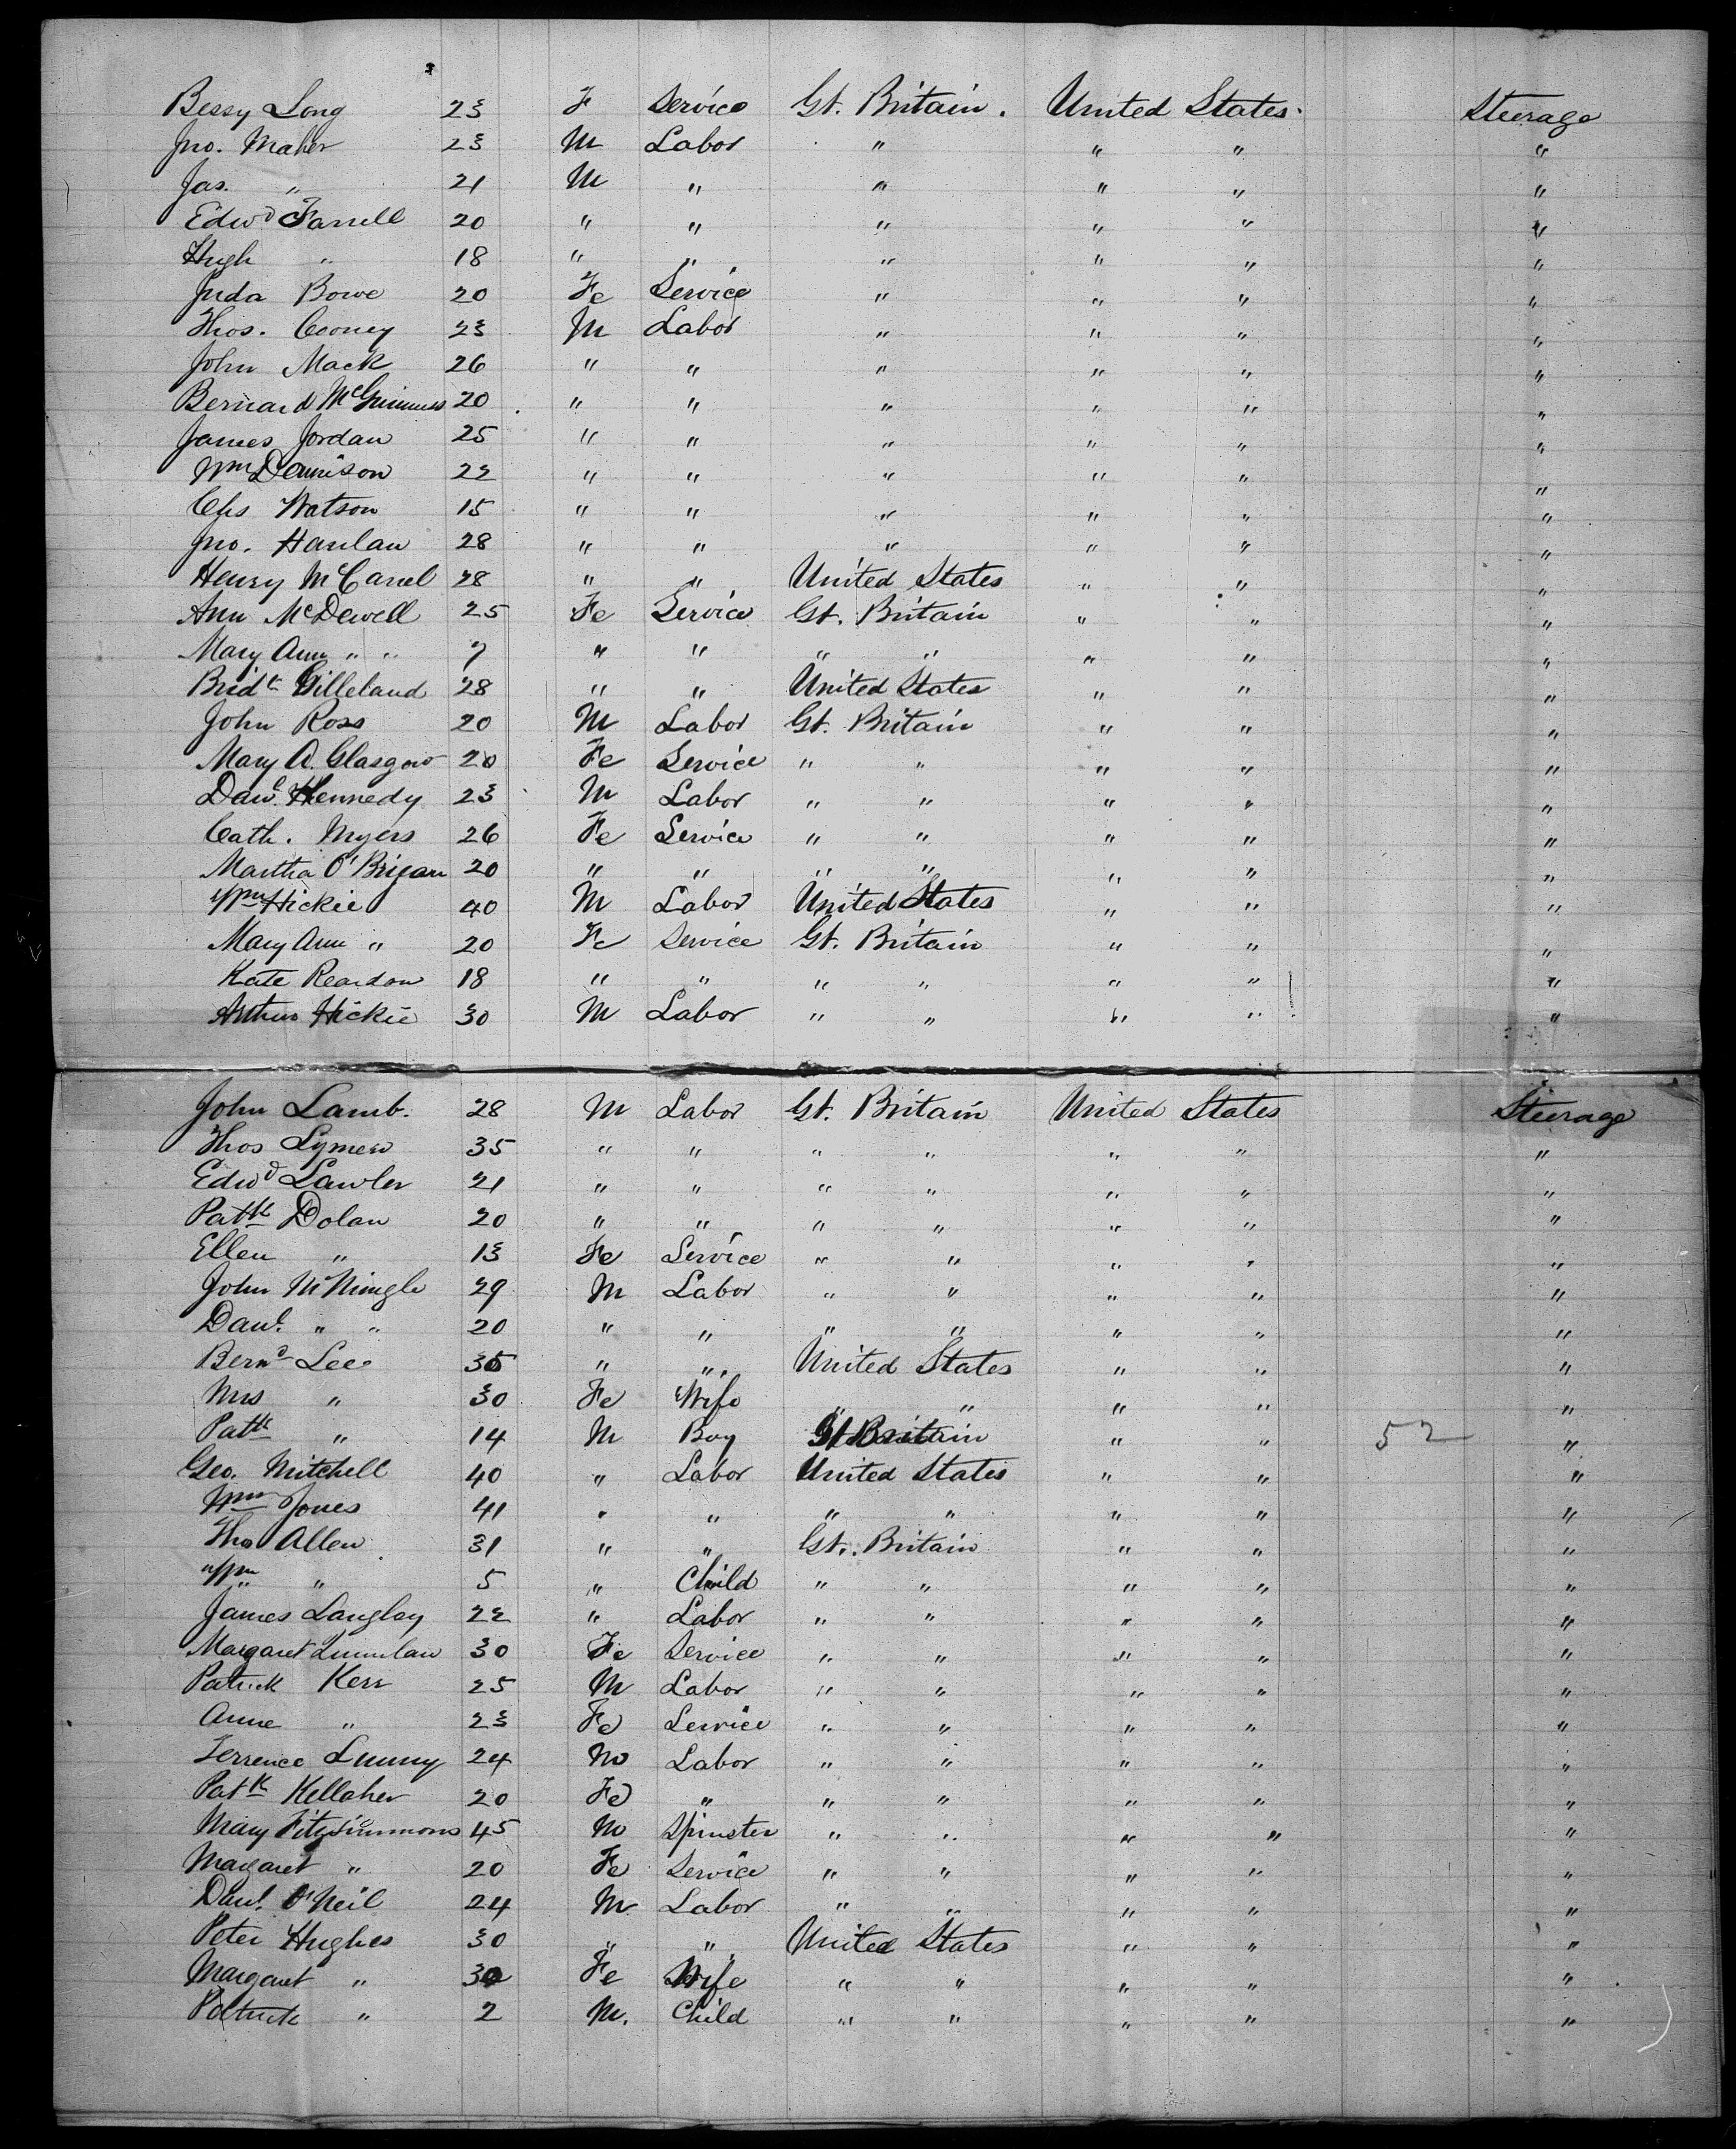 Bessy Long 23 F Service Gt. Britain. United States. Steerage
Jno. Maher 23 M Labor " " " "
Jas. " 21 M " " " " "
Edwd Farrell 20 " " " " " "
Hugh " 18 " " " " " "
Juda Bowe 20 Fe Service " " " "
Thos. Cooney 23 M Labor " " " "
John Mack 26 " " " " " "
Bernard McGuinness 20 " " " " " "
James Jordan 25 " " " " " "
Wm Dennison 22 " " " " " "
Chs Watson 15 " " " " " "
Jno. Hanlan 28 " " " " " "
Henry McCarrel 28 " " United States " " "
Ann McDewell 25 Fe Service Gt. Britain " " "
Mary Ann " " 7 " " " " " " "
Bridt Gilleland 28 " " United States " " "
John Ross 20 M Labor Gt. Britain " " "
Mary A. Glasgow 20 Fe Service " " " " "
Danl. Kennedy 23 M Labor " " " " "
Cath. Myers 26 Fe Service " " " " "
Martha O'Brigan 20 " " " " " " "
Wm Hickie 40 M Labor United States " " "
Mary Ann " 20 Fe Service Gt. Britain " " "
Kate Reardon 18 " " " " " " "
Arthur Hickie 30 M Labor " " " " "
John Lamb. 28 M Labor Gt. Britain United States Steerage
Thos Lymen 35 " " " " " " "
Edwd Lawler 21 " " " " " " "
Pattk Dolan 20 " " " " " " "
Ellen " 13 Fe Service " " " " "
John McNingle 29 M Labor " " " " "
Danl. " " 20 " " " " " " "
Bernd Lee 35 " " United States " " "
Mrs " 30 Fe Wife " " " " "
Pattk " 14 M Boy Gt Britain " " 52 "
Geo. Mitchell 40 " Labor United States " " "
Wm Jones 41 " " " " " " "
Tho Allen 31 " " Gt. Britain " " "
Wm " 5 " Child " " " " "
James Langley 22 " Labor " " " " "
Margaret 30 Fe Service " " " " "
Patrick Kerr 25 M Labor " " " " "
Anne " 23 Fe Service " " " " "
Terrence Lunny 24 M Labor " " " " "
Patk Kellaher 20 Fe " " " " " "
Mary Fitzsimmons 45 M Spinster " " " " "
Margaret " 20 Fe Service " " " " "
Danl. O'Neil 24 M Labor " " " " "
Peter Hughes 30 " " United States " " "
Margaret " 30 Fe Wife " " " " "
Patrick " 2 M. Child " " " " "